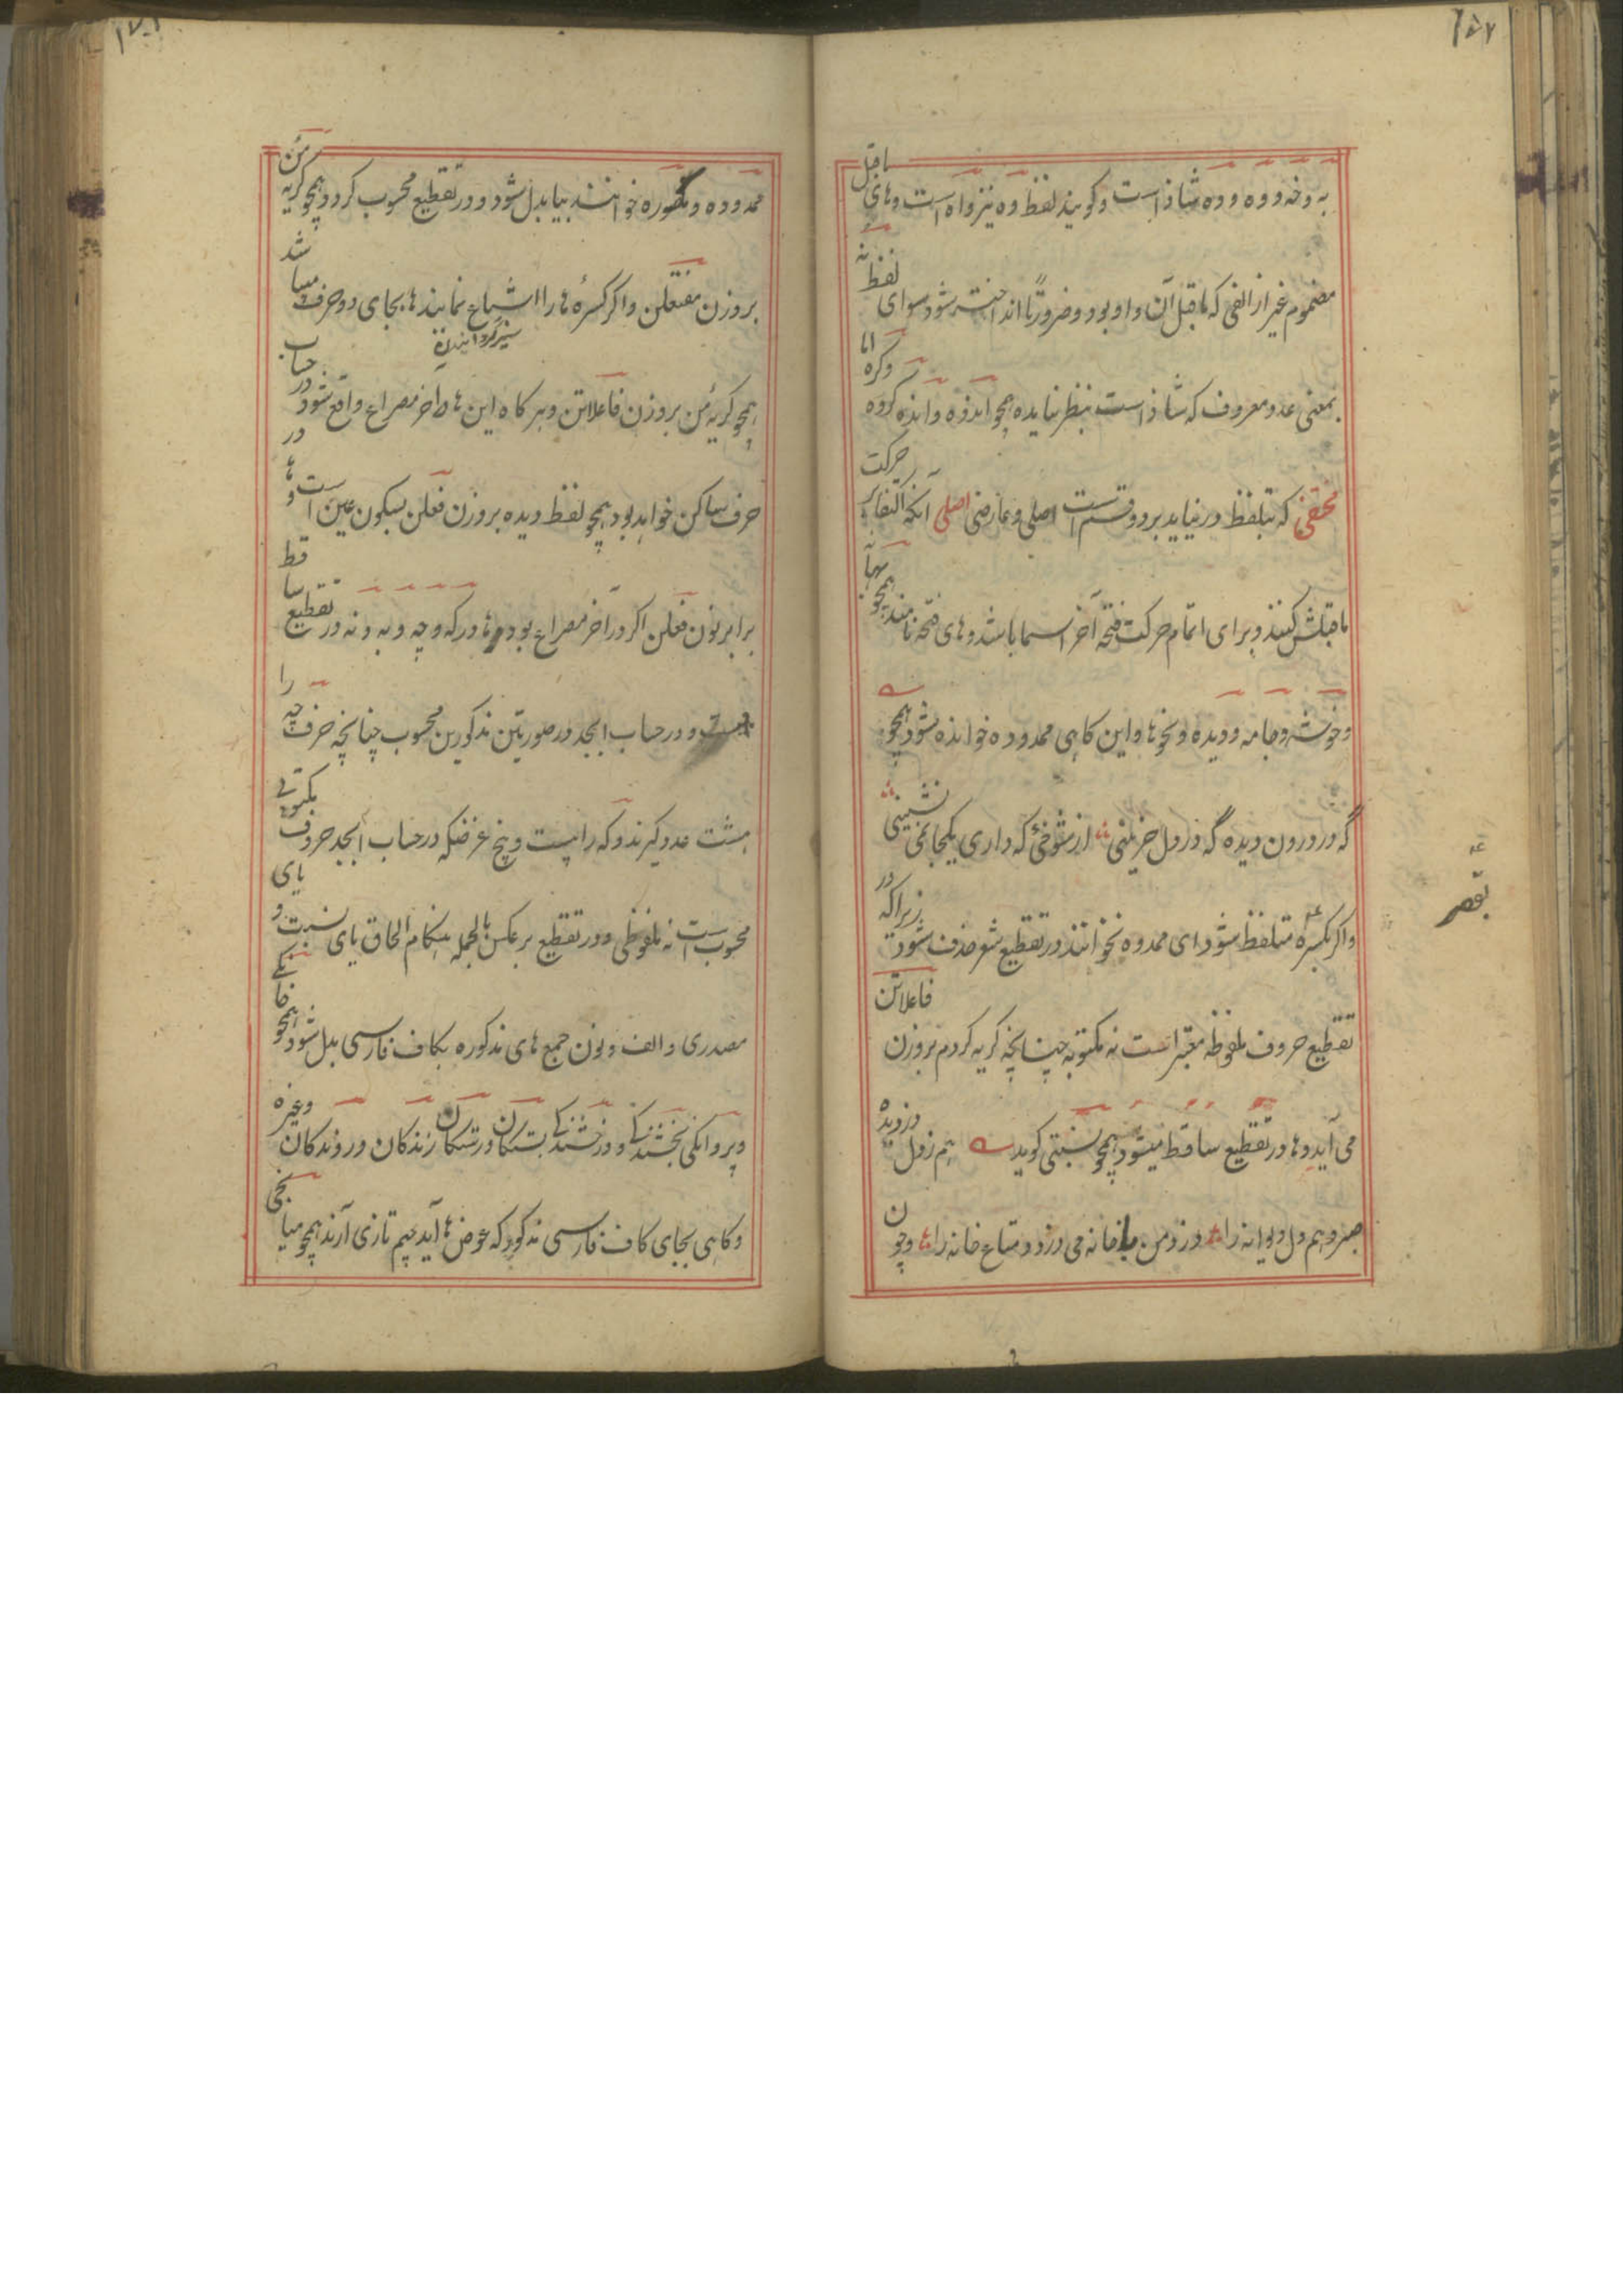 به و خه و وه و ده شاذ است و کویند لفظ وه نیز واه است و های ماقبل
مضموم غیر از الفی که ماقبل آن واو بود و ضرورتاً انداخته شود سوای لفظ نه
بمعنی عدد معروف که شاذ است بنظر نیامده همچو اندوه و انده کروه وکره اما
مختفی که بتلفظ در نیاید بر دو قسم است اصلی و عارضی اصلی آنکه اکتفا بر حرکت
ماقبلش کنند و برای اتمام حرکت فتحه آخر اسما باشد و های فتحه نامند همچو
و خوشه و جامه و دیده و نحوها و این کاهی ممدوده خوانده شود همچو
گه در درون دیده گه در دل حزینی از شوخئ که داری یکجا نمی نشینی
و اکر بکسره متلفظ شود ای ممدوه نخوانند در تقطیع شعر حذف شود زیراکه در
بقصر
تقطیع حروف ملفوظه معتبر است نه مکتوبه چنانچه کریه کردم بروزن فاعلاتن
می آید و ها در تقطیع ساقط میشود همچو نسبتی کوید هم زدل دزدیده
صبر و هم دل دیوانه را دزد من با خانه می دزدد متاع خانه را و چون
ممدوده و مکسوره خوانند بیا بدل شود و در تقطیع محسوب کردد همچو کریه من
بر وزن مفتعلن و اکر کسرۀ ها را اشباع نمایند ها بجای دو حرف میباشد
همچو کریۂ من بر وزن فاعلاتن و هر کاه این ها در آخر مصراع واقع شود در حساب
حرف ساکن خواهد بود همچو لفظ دیده بر وزن فعلن بسکون عین است و ها در
برابر نون فعلن اکر در آخر مصراع بود و ها در که و چه و به و نه در تقطیع ساقط
است و در حساب ابجد در صورتین مذکورین محسوب چنانچه حرف چه را
هشت عدد کیرند و که را بیست و پنج غرضکه در حساب ابجد حروف مکتوبی
محسوب است نه ملفوظی و در تقطیع بر عکس بالجمله هنکام الحاق یای نسبت و یای
مصدری و الف و نون جمع های مذکوره بکاف فارسی بدل شود همچو خانکی
و پروانکی بخشندکی و درخشندکی بستکان و رستکان زندکان و روندکان وغیره
و کاهی بجای کاف فارسی مذکور که عوض ها آید جیم تازی آرند همچو میانجی